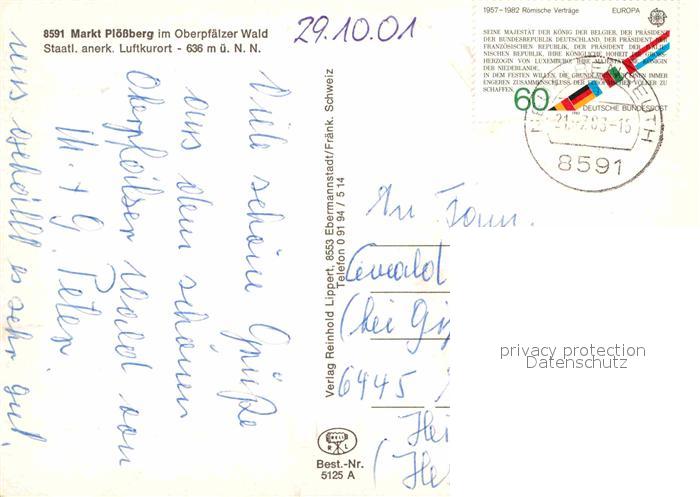 8591 Markt Plößberg im Oberpfälzer Wald
Staatl. anerk. Luftkurort - 636 m ü. N. N.
29.10.01
Viele schöne Grüße
aus dem schönen
Oberpfälzer Wald von
M. + G. Peter.
uns gefällt es sehr gut.
Verlag Reinhold Lippert, 8553 Ebermannstadt/Fränk. Schweiz
Telefon 0 91 94 / 5 14
RELI
R L
Best.-Nr.
5125 A
1957-1982 Römische Verträge EUROPA
SEINE MAJESTÄT DER KÖNIG DER BELGIER, DER PRÄSIDENT
DER BUNDESREPUBLIK DEUTSCHLAND, DER PRÄSIDENT DER
FRANZÖSISCHEN REPUBLIK, DER PRÄSIDENT DER ITALIE-
NISCHEN REPUBLIK, IHRE KÖNIGLICHE HOHEIT DIE GROSS-
HERZOGIN VON LUXEMBURG, IHRE MAJESTÄT DIE KÖNIGIN
DER NIEDERLANDE,
IN DEM FESTEN WILLEN, DIE GRUNDLAGEN FÜR EINEN IMMER
ENGEREN ZUSAMMENSCHLUSS DER EUROPÄISCHEN VÖLKER ZU
SCHAFFEN,
60
DEUTSCHE BUNDESPOST
8591
An Fam.
(bei
6445
privacy protection
Datenschutz